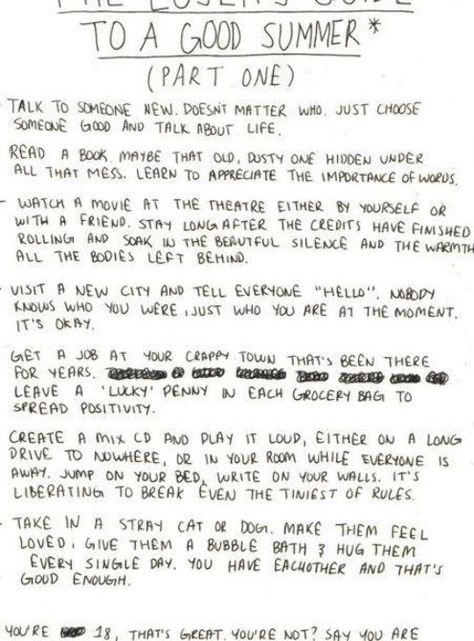 THE LOSER'S GUIDE
TO A GOOD SUMMER*
(PART ONE)
- TALK TO SOMEONE NEW. DOESNT MATTER WHO. JUST CHOOSE
SOMEONE GOOD AND TALK ABOUT LIFE.
READ A BOOK. MAYBE THAT OLD, DUSTY ONE HIDDEN UNDER
ALL THAT MESS. LEARN TO APPRECIATE THE IMPORTANCE OF WORDS.
- WATCH A MOVIE AT THE THEATRE EITHER BY YOURSELF OR
WITH A FRIEND. STAY LONG AFTER THE CREDITS HAVE FINISHED
ROLLING AND SOAK IN THE BEAUTFUL SILENCE AND THE WARMTH
ALL THE BODIES LEFT BEHIND.
- VISIT A NEW CITY AND TELL EVERYONE "HELLO". NOBODY
KNOWS WHO YOU WERE, JUST WHO YOU ARE AT THE MOMENT.
IT'S OKAY.
GET A JOB AT YOUR CRAPPY TOWN THAT'S BEEN THERE
FOR YEARS.
LEAVE A 'LUCKY' PENNY IN EACH GROCERY BAG TO
SPREAD POSITIVITY.
CREATE A MIX CD AND PLAY IT LOUD, EITHER ON A LONG
DRIVE TO NOWHERE, OR IN YOUR ROOM WHILE EVERYONE IS
AWAY. JUMP ON YOUR BED, WRITE ON YOUR WALLS. IT'S
LIBERATING TO BREAK EVEN THE TINIEST OF RULES.
- TAKE IN A STRAY CAT OR DOG. MAKE THEM FEEL
LOVED, GIVE THEM A BUBBLE BATH & HUG THEM
EVERY SINGLE DAY. YOU HAVE EACHOTHER AND THAT'S
GOOD ENOUGH.
YOU'RE 18, THAT'S GREAT. YOU'RE NOT? SAY YOU ARE